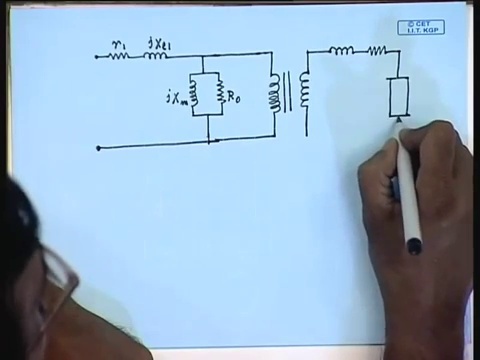 © CET
I.I.T. KGP
r₁ jXℓ1
jXm R₀